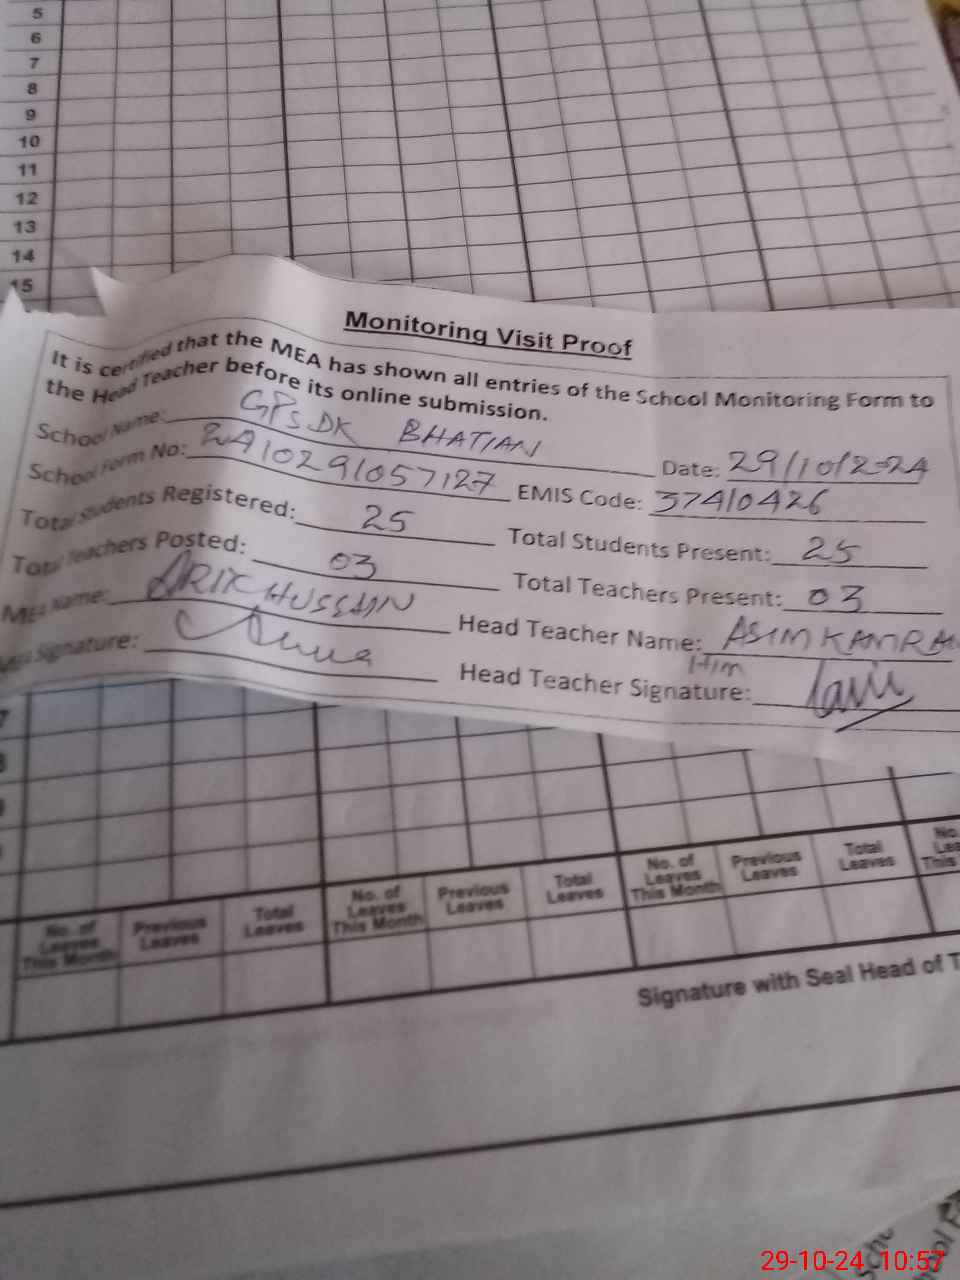 5
6
7
8
9
10
11
12
13
14
15
Monitoring Visit Proof
It is certified that the MEA has shown all entries of the School Monitoring Form to
the Head Teacher before its online submission.
School Name: GPS DK BHATIAN Date: 29/10/2024
School Form No: 2410291057127 EMIS Code: 37410426
Total Students Registered: 25 Total Students Present: 25
Total Teachers Posted: 03 Total Teachers Present: 03
MEA Name: HUSSAIN Head Teacher Name: ASIM KAMRA
MEA Signature: Head Teacher Signature:
No. of Leaves This Month Previous Leaves Total Leaves No. of Leaves This Month Previous Leaves Total Leaves No. of Leaves This Month Previous Leaves Total Leaves
Signature with Seal Head of
29-10-24 10:57